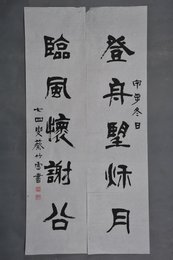 登舟望秌月
甲申冬日
臨風懷謝公
七四叟蔡竹雲書